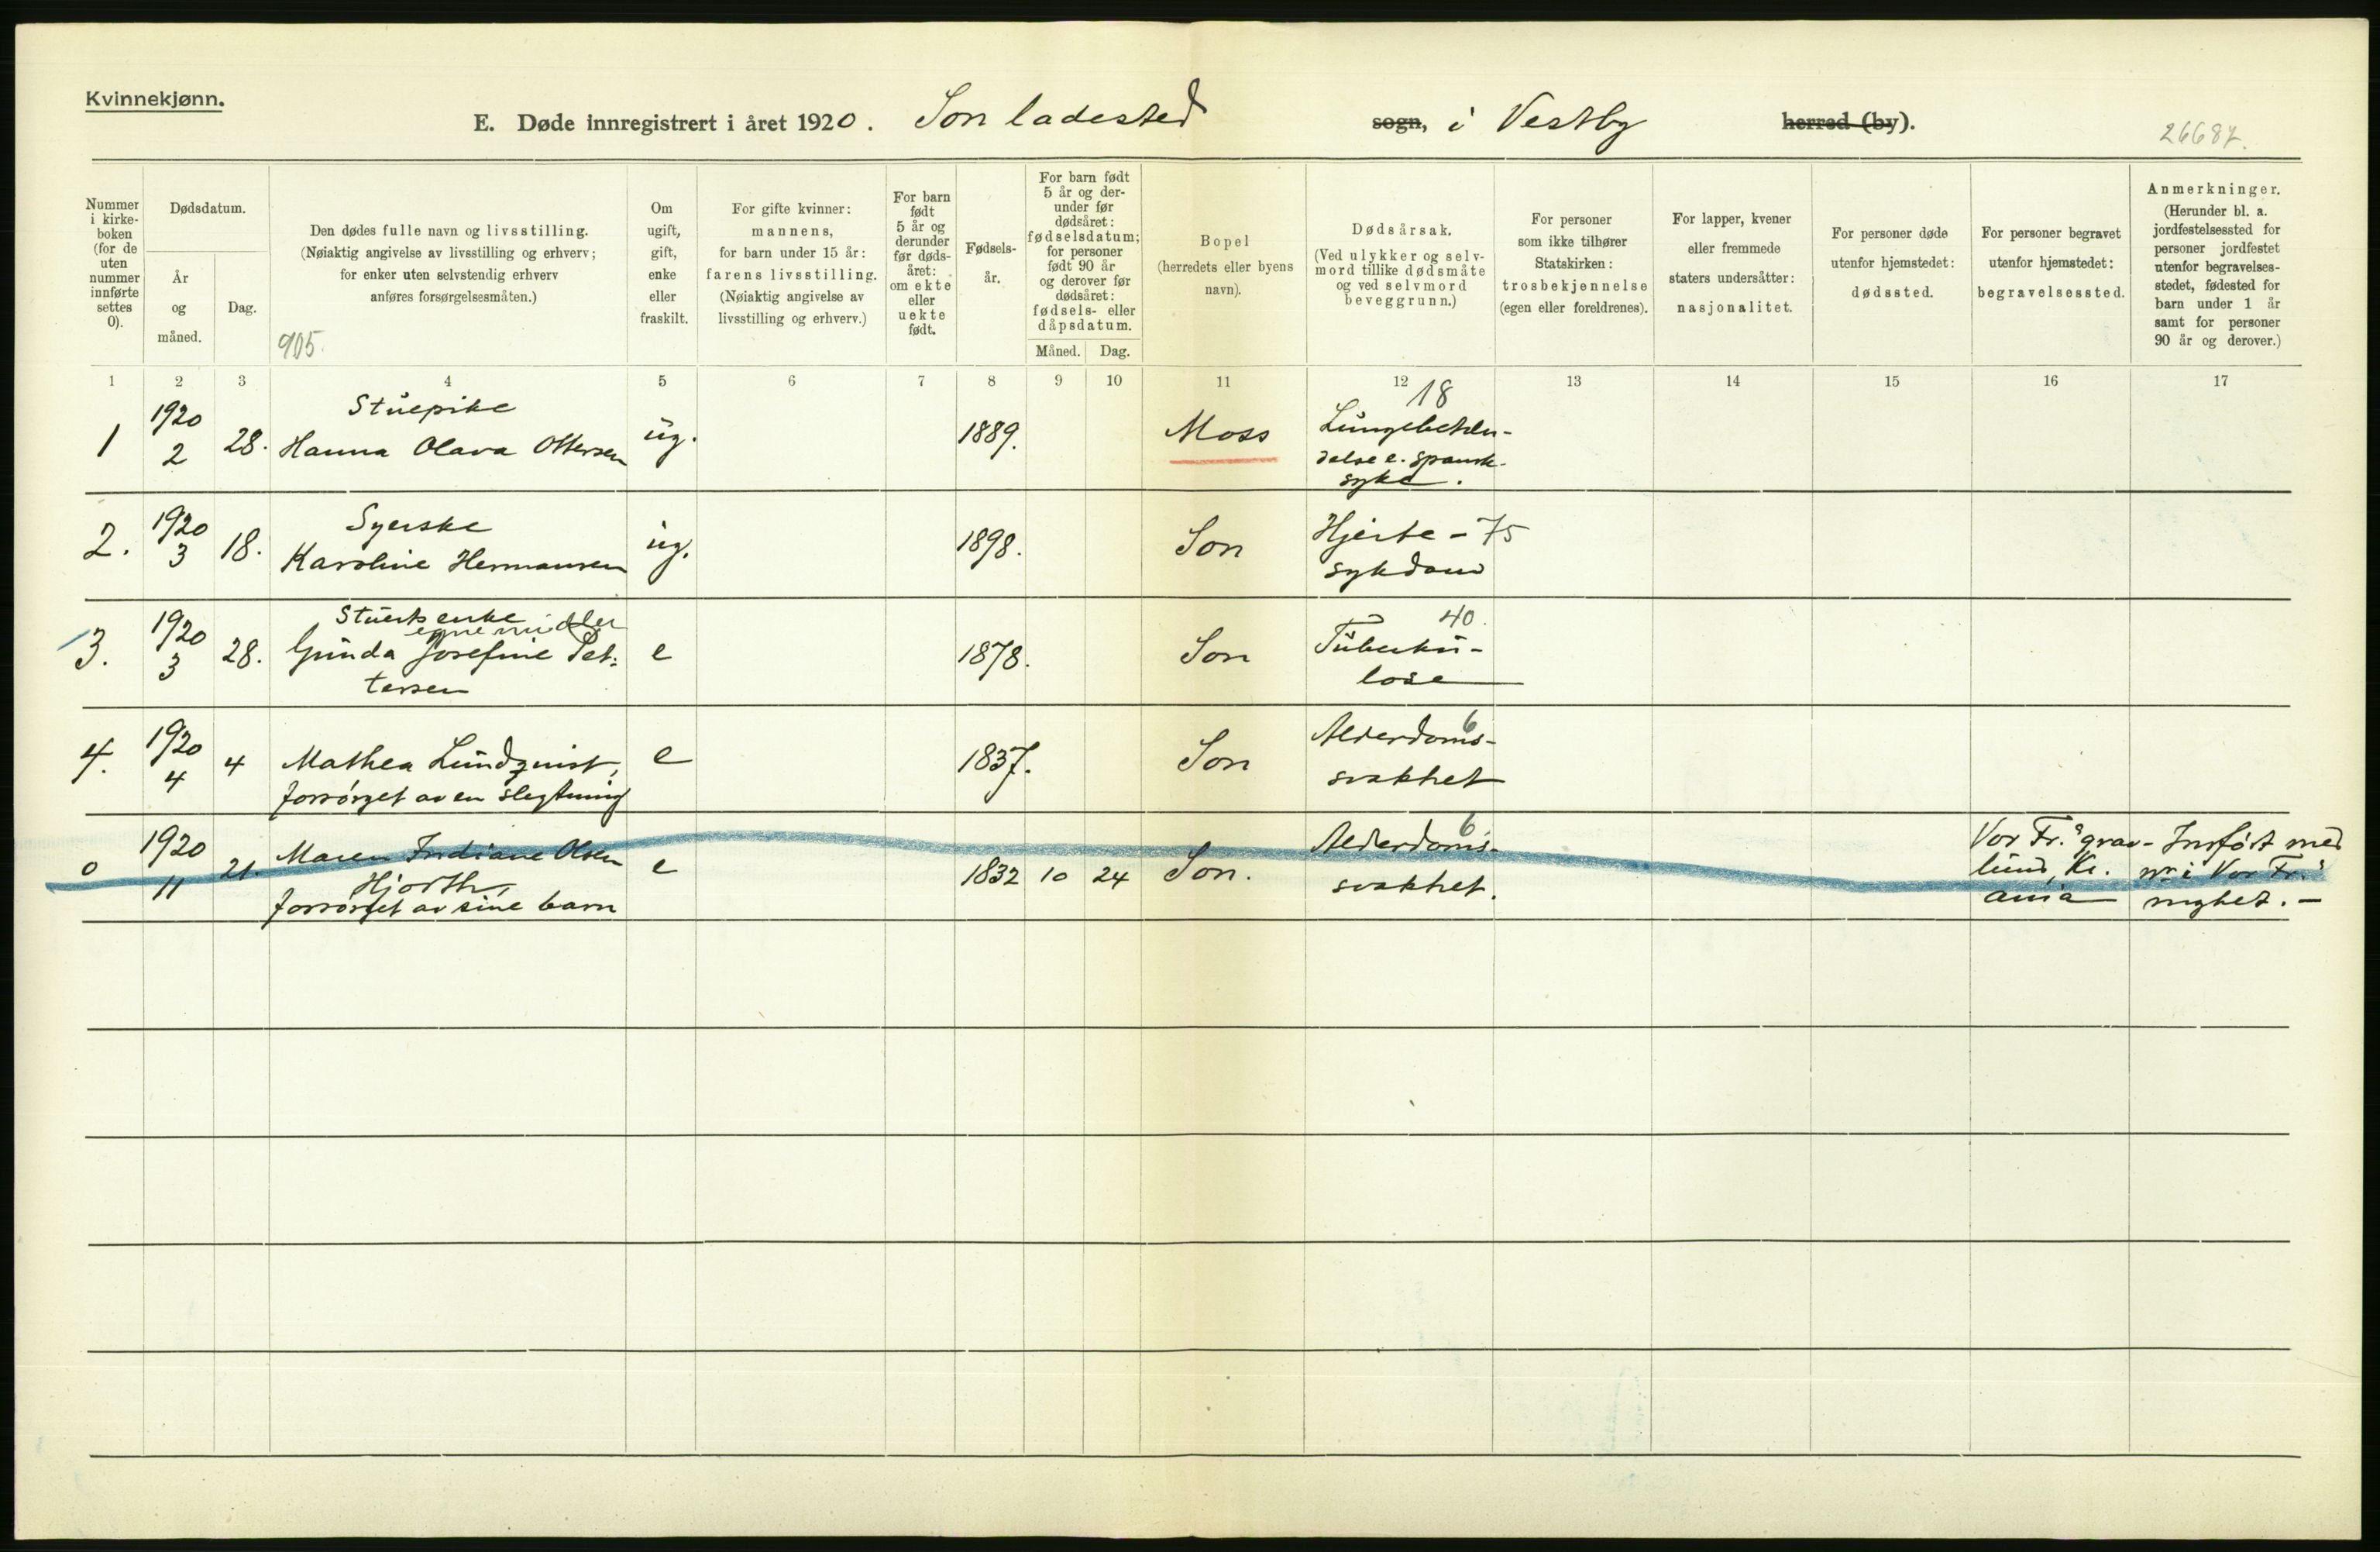 Kvinnekjønn.
E. Døde innregistrert i året 1920. Son ladested sogn, i Vestby herred (by).
26687.
Nummer
i kirke-
boken
(for de
uten
nummer
innførte
settes
0).
Dødsdatum.
År
og
måned.
Dag.
Den dødes fulle navn og livsstilling.
(Nøiaktig angivelse av livsstilling og erhverv;
for enker uten selvstendig erhverv
anføres forsørgelsesmåten.)
905.
Om
ugift,
gift,
enke
eller
fraskilt.
For gifte kvinner:
mannens,
for barn under 15 år:
farens livsstilling.
(Nøiaktig angivelse av
livsstilling og erhverv.)
For barn
født
5 år og
derunder
før døds-
året:
om ekte
eller
uekte
født.
Fødsels-
år.
For barn født
5 år og der-
under før
dødsåret:
fødselsdatum;
for personer
født 90 år
og derover før
dødsåret:
fødsels- eller
dåpsdatum.
Måned. Dag.
Bopel
(herredets eller byens
navn).
Dødsårsak.
(Ved ulykker og selv-
mord tillike dødsmåte
og ved selvmord
beveggrunn.)
For personer
som ikke tilhører
Statskirken:
trosbekjennelse
(egen eller foreldrenes).
For lapper, kvener
eller fremmede
staters undersåtter:
nasjonalitet.
For personer døde
utenfor hjemstedet:
dødssted.
For personer begravet
utenfor hjemstedet:
begravelsessted.
Anmerkninger.
(Herunder bl. a.
jordfestelsessted for
personer jordfestet
utenfor begravelses-
stedet, fødested for
barn under 1 år
samt for personer
90 år og derover.)
1 2 3 4 5 6 7 8 9 10 11 12 13 14 15 16 17
1
1920
2
28.
Stuepike
Hanna Olava Ottersen
ug.
1889.
Moss
18
Lungebeten-
delse e. spansk-
syke.
2.
1920
3
18.
Syerske
Karoline Hermansen
ug.
1898.
Son
Hjerte - 75
sykdom
3.
1920
3
28.
Stuerts enke
egne midler
Gunda Josefine Pet-
tersen
e
1878.
Son
40.
Tuberku-
lose
4.
1920
4
4
Mathea Lundqvist,
forsørget av en slegtning
e
1837.
Son
6
Alderdoms-
svakhet
0
1920
11
21.
Maren Indiane Olsen
Hjorth,
forsørget av sine barn
e
1832 10 24
Son.
6.
Alderdoms-
svakhet.
Vor Fr.s grav-
lund, Kr.
ania
Innført med
nr i Vor Fr.s
nighet. -